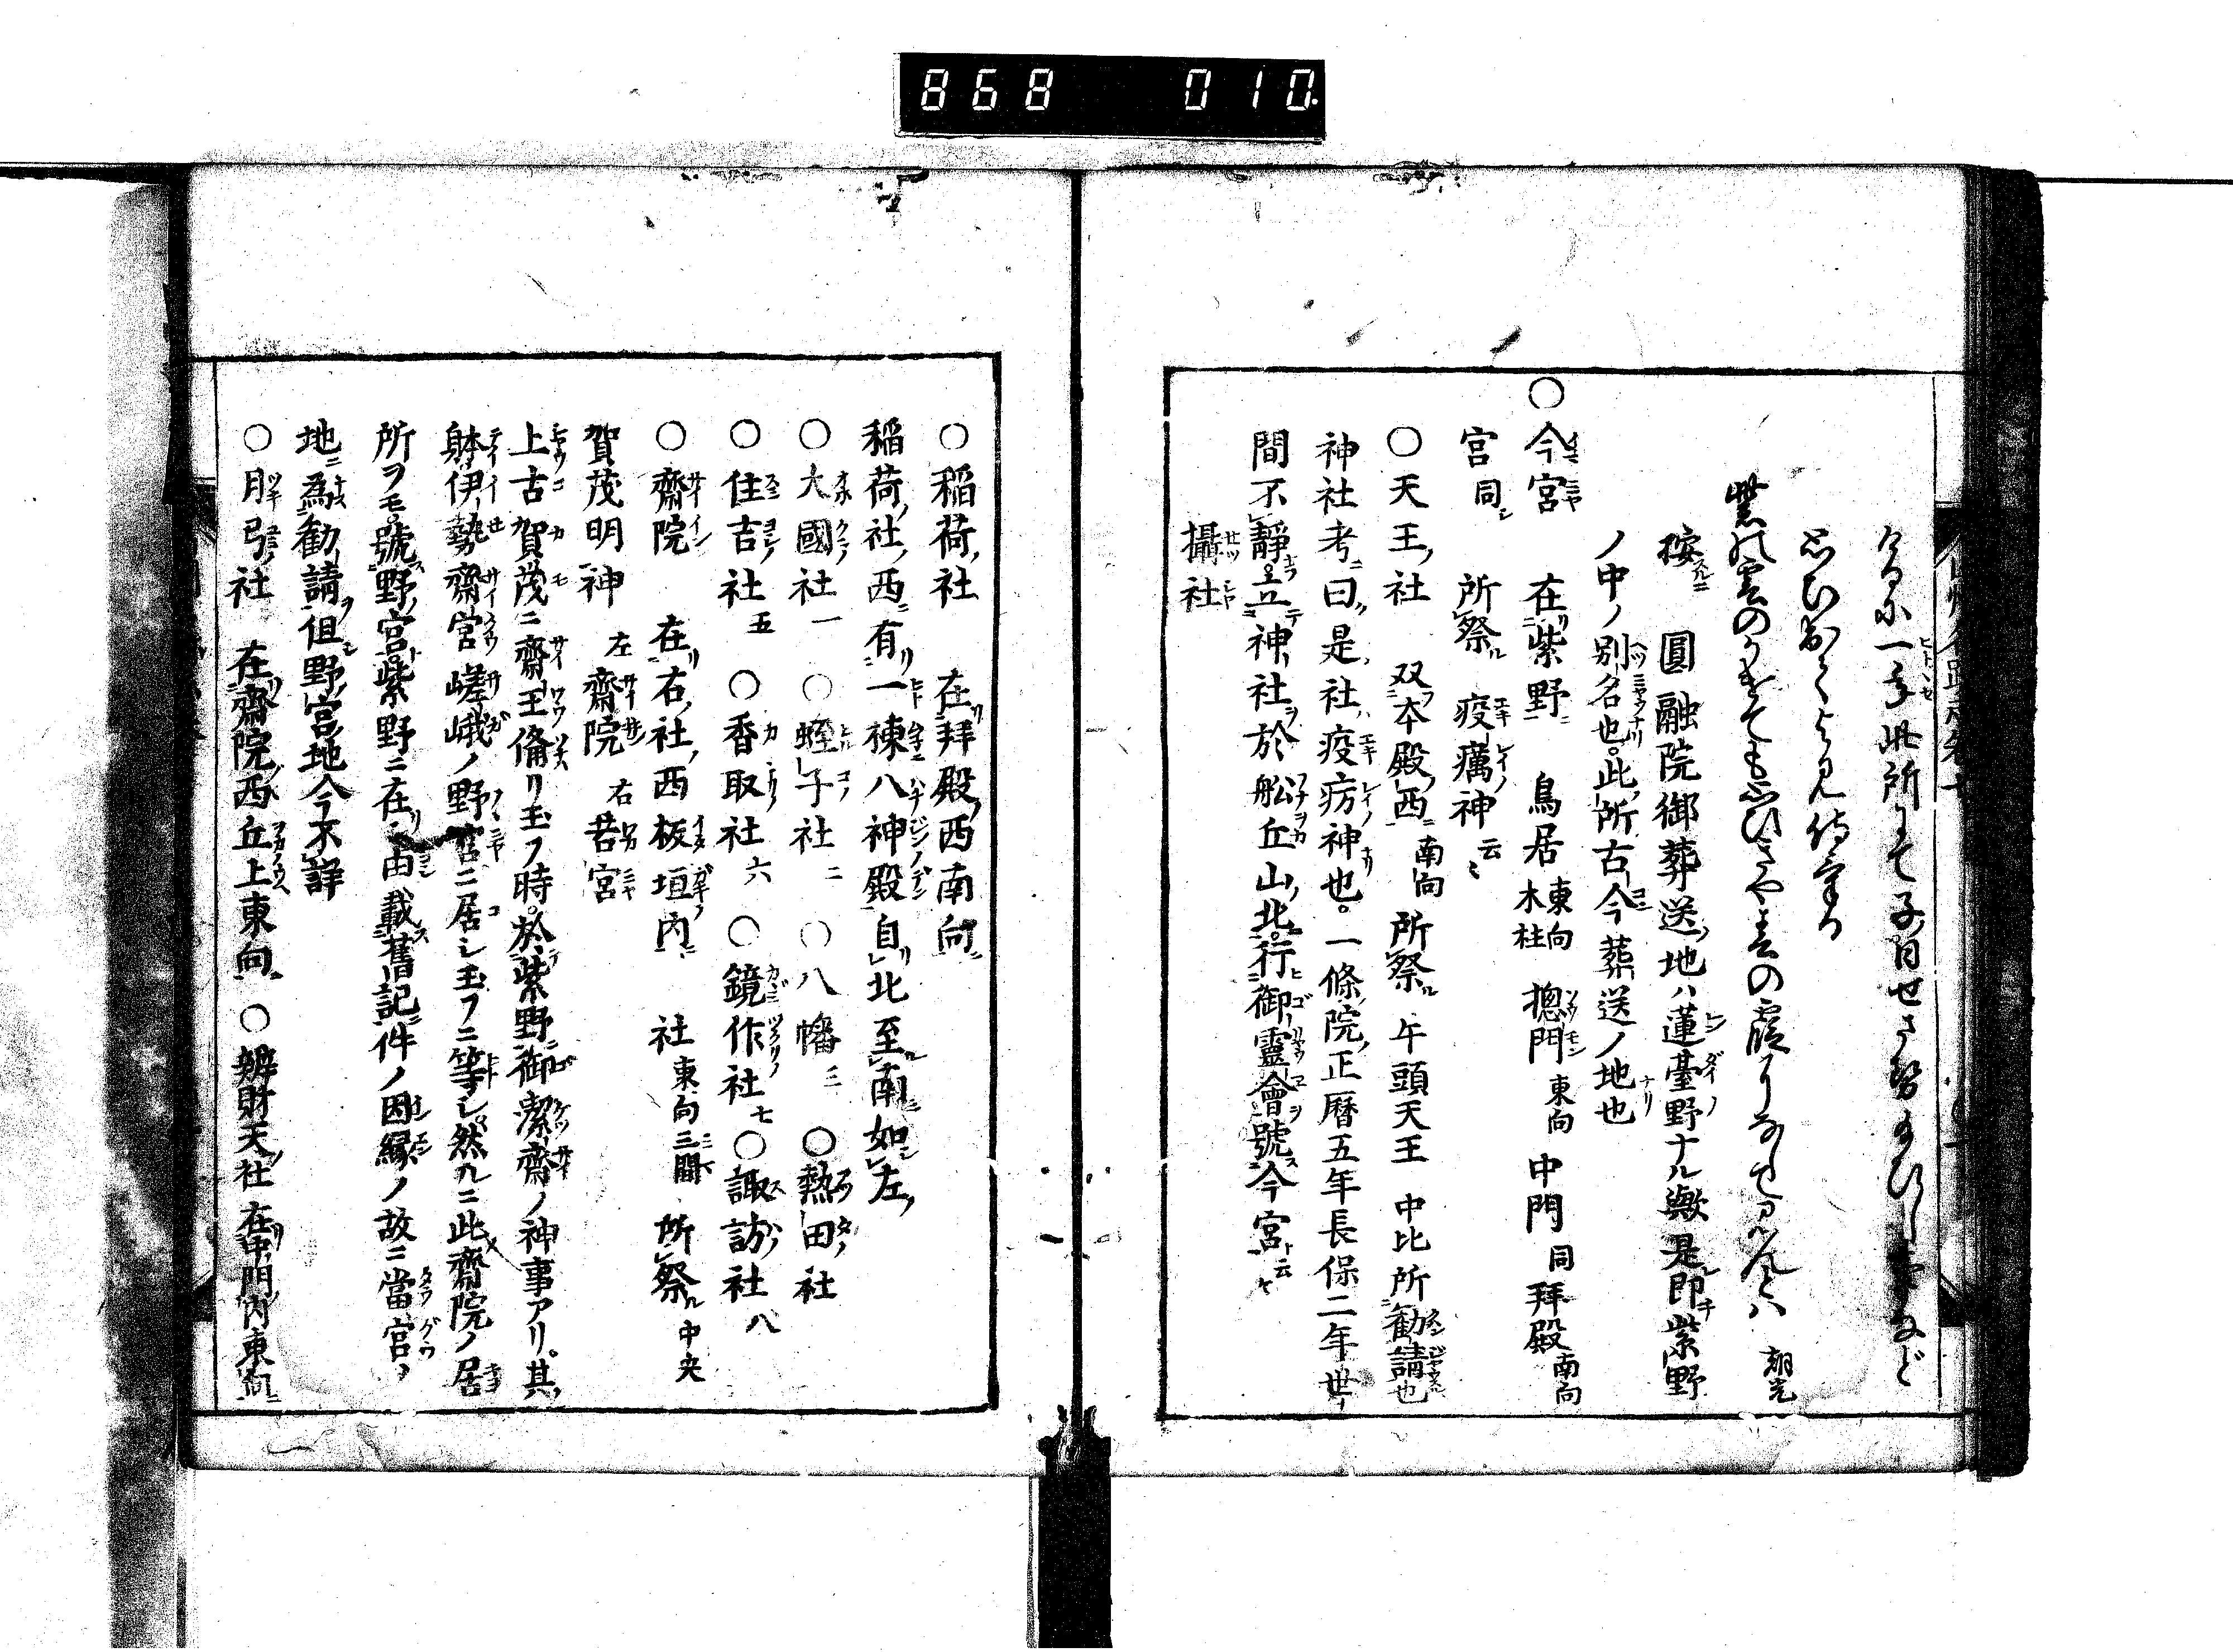 868 010
けるに一とせ此所にて子日せさせ給ひし事など
思ひ出
紫の雲の
朝光
按スルニ 圓融院御葬送ノ地ハ蓮臺野ナル歟是即チ紫野
ノ中ノ別名也此所古今葬送ノ地也
○今宮 在紫野 鳥居 東向木柱 摠門 東向 中門 同 拜殿 南向
宮 同シ 所祭ル 疫癘ノ神 云々
○天王ノ社 双本殿ノ西ニ 南向 所祭ル 午頭天王 中比所勸請也
神社考ニ曰ク是ノ社ハ疫疠ノ神也。一條院ノ正曆五年長保二年世ノ
間不靜立テ神ノ社ヲ於舩丘山ノ北ニ行御靈會ヲ號ス今宮ト云々
攝社
○稲荷ノ社 在拜殿ノ西南向ニ
稲荷ノ社ノ西ニ有リ一棟八神殿自リ北至ル南ニ如シ左ノ
○大國ノ社 一 ○蛭子ノ社 二 ○八幡 三 ○熱田ノ社
○住吉ノ社 五 ○香取ノ社 六 ○鏡作ノ社 七 ○諏訪ノ社 八
○齋院 在リ右ノ社ノ西板垣ノ内ニ 社 東向三間 所祭ル 中央
賀茂明神 左 齋院 右 若宮
上古賀茂ニ齋王備リ玉フ時。於テ紫野ニ御潔齋ノ神事アリ。其ノ
躰伊勢齋宮嵯峨ノ野宮ニ居シ玉フニ等シ然ルニ此齋院ノ居
所ヲモ號ス野ノ宮ト紫野ニ在ル由載ス舊記ニ件ノ因縁ノ故ニ當宮ヲ
地ニ爲ス勸請ヲ但シ野ノ宮ノ地今不詳
○月弓ノ社 在リ齋院ノ西丘ノ上東向ニ ○辨財天ノ社 在リ中門ノ内東向ニ